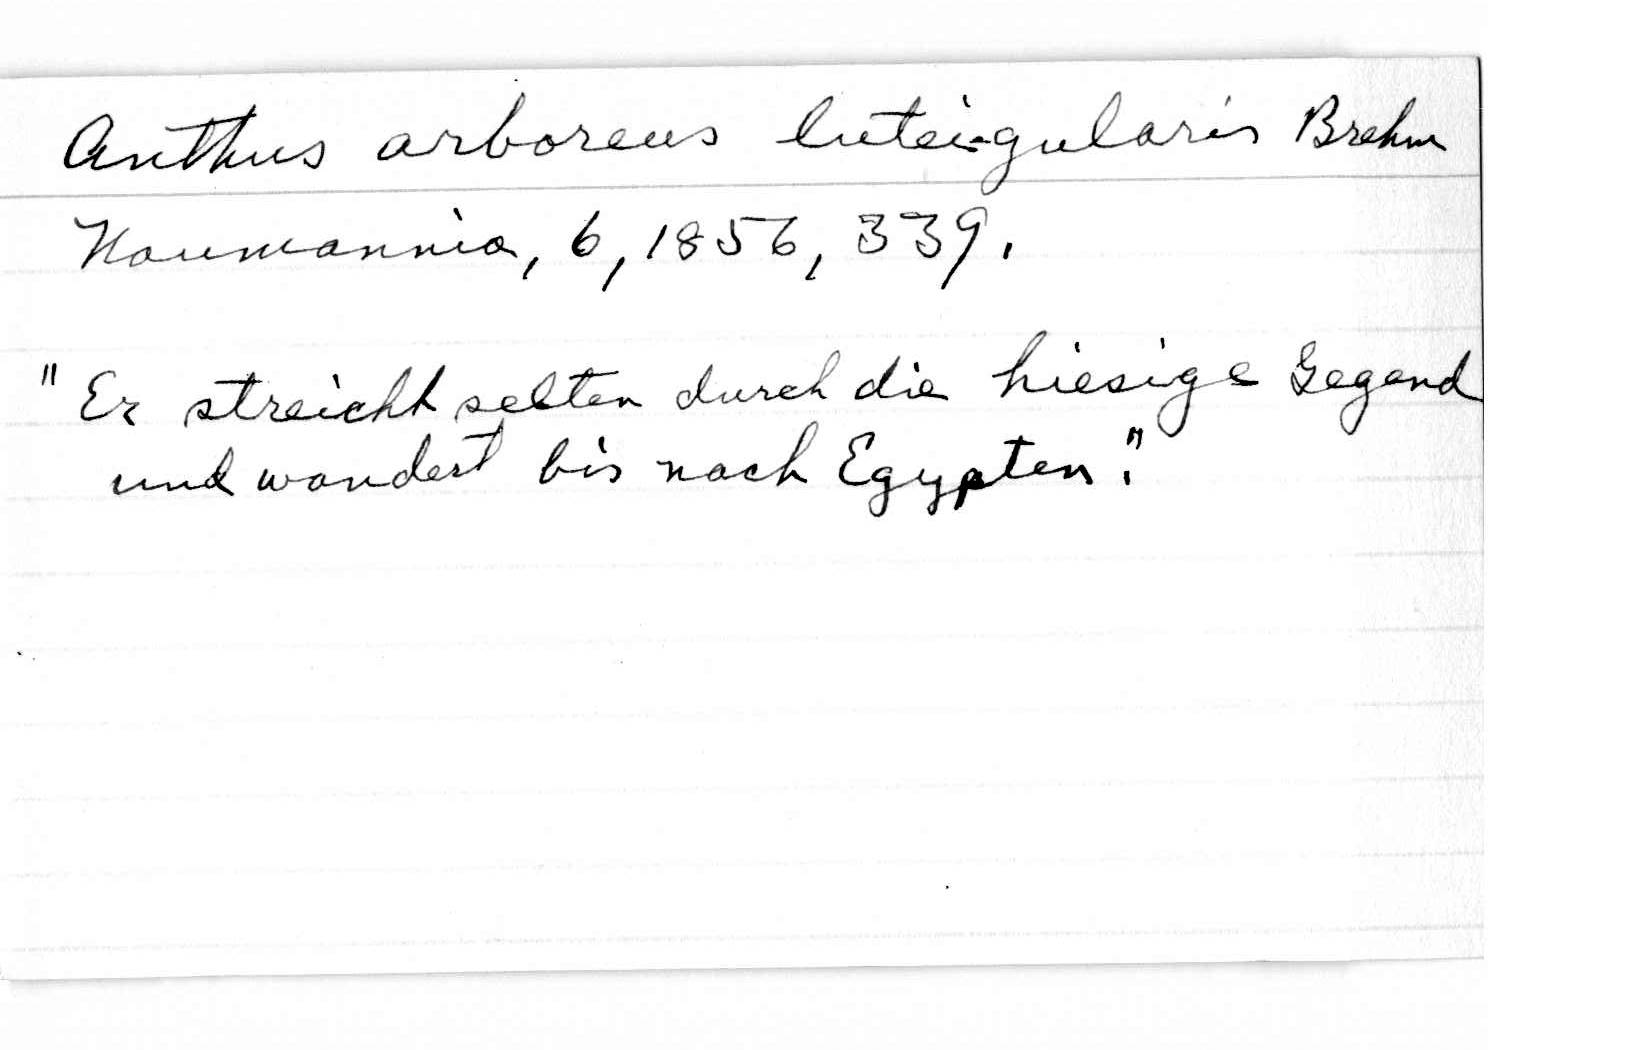 Anthus arboreus lutei-gularis Brehm
Naumannia, 6, 1856, 339.
"Er streicht selten durch die hiesige Gegend
und wandert bis nach Egypten."